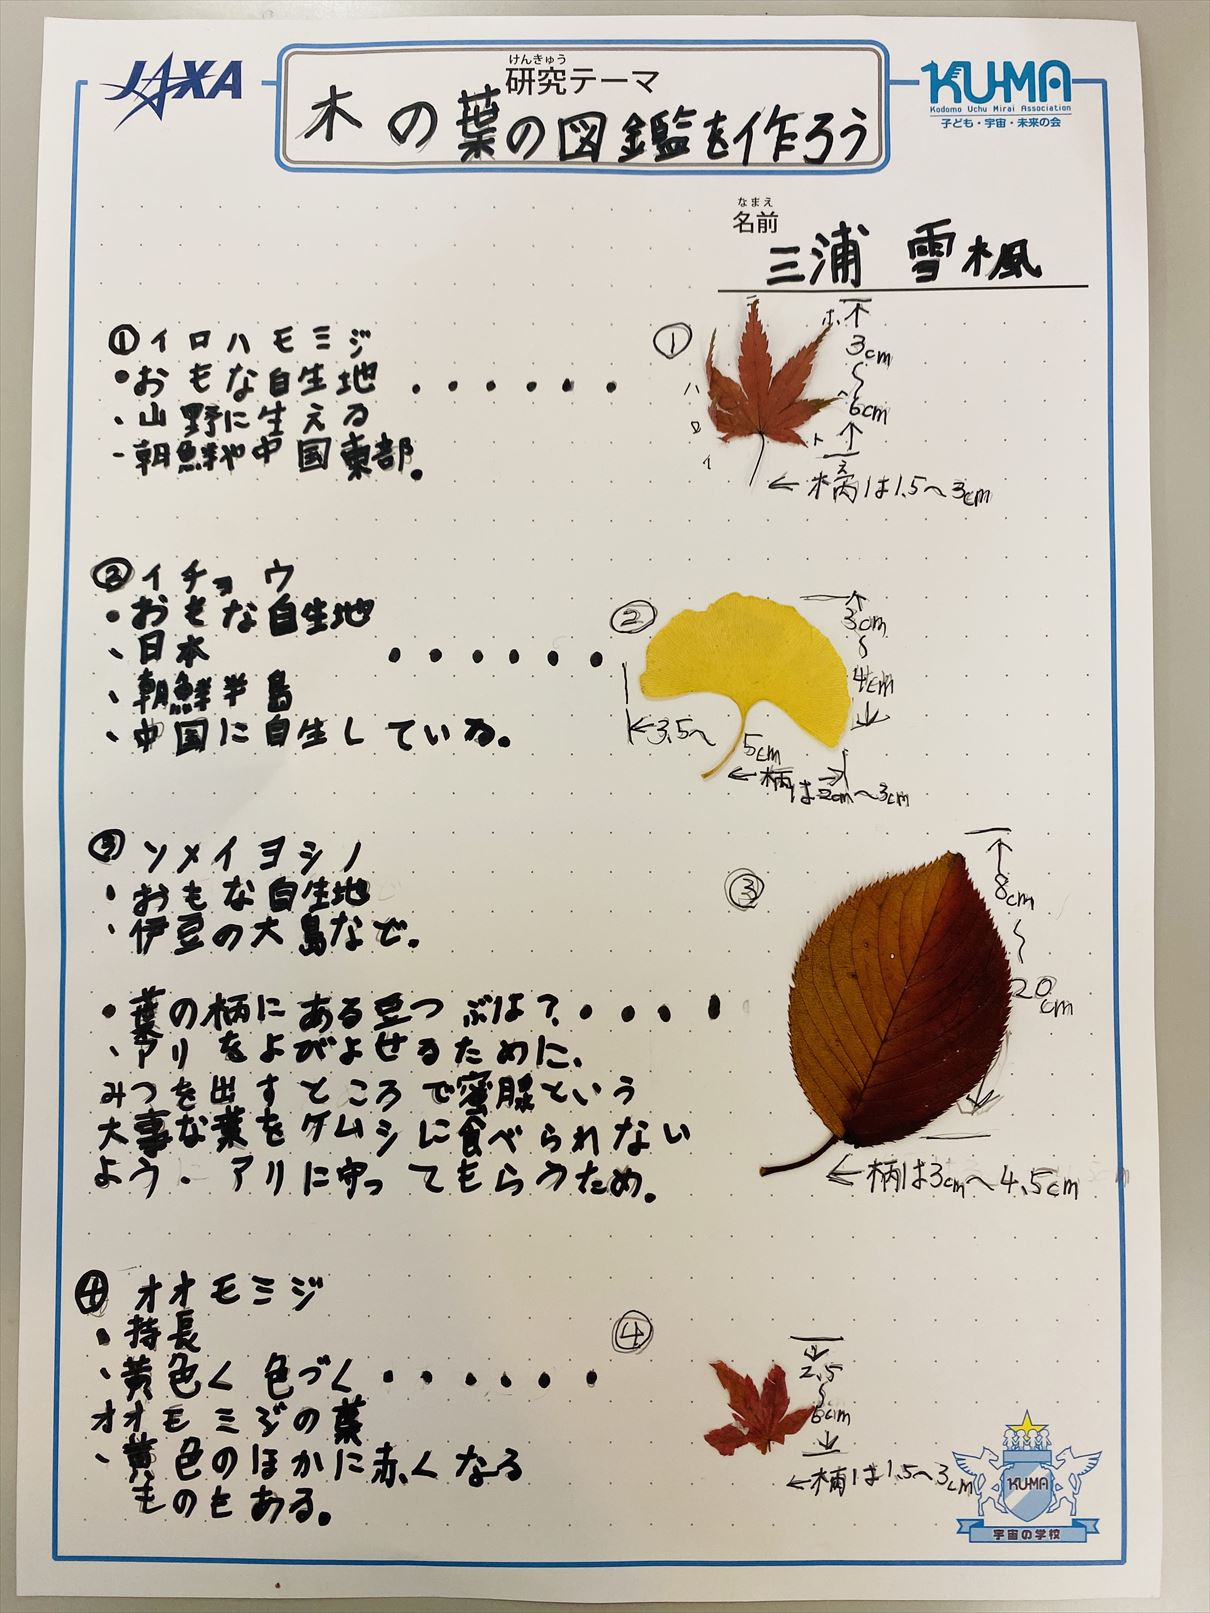 JAXA
けんきゅう
研究テーマ
木の葉の図鑑を作ろう
KU-MA
Kodomo Uchu Mirai Association
子ども・宇宙・未来の会
なまえ
名前
三浦 雪楓
①イロハモミジ
•おもな自生地 ・・・・・・
・山野に生える
-朝鮮や中国東部。
①
ホ
ハ
ロ
イ
ト
3cm
〜
6cm
え
←柄は1.5〜3cm
②イチョウ
•おもな自生地
、日本 ・・・・・・
、朝鮮半島
、中国に自生している。
②
3cm
〜
4cm
3.5〜
5cm
←柄は2cm〜3cm
③ソメイヨシノ
・おもな自生地
・伊豆の大島など。
•葉の柄にある豆つぶは?・・・・
、アリをよびよせるために、
みつを出すところで蜜腺という
大事な葉をケムシに食べられない
よう.アリに守ってもらうため。
③
8cm
〜
20cm
←柄は3cm〜4.5cm
④オオモミジ
•持長
、黄色く色づく・・・・・・
オオモミジの葉
、黄色のほかに赤くなる
ものもある。
④
2.5
〜
6cm
←柄は1.5〜3cm
KU-MA
宇宙の学校